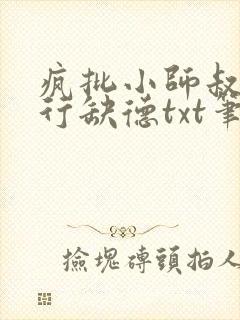 疯批小師叔
行缺德txt筆
撿塊磚頭拍人